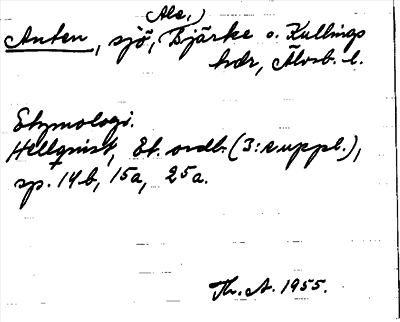 Ale,)
Anten, sjö, Bjärke o. Kullings
hdr, Älvsb. l.
Etymologi.
Hellquist, Et. ordb. (3: suppl.),
sp. 14b, 15a, 25a.
Th. A. 1955.